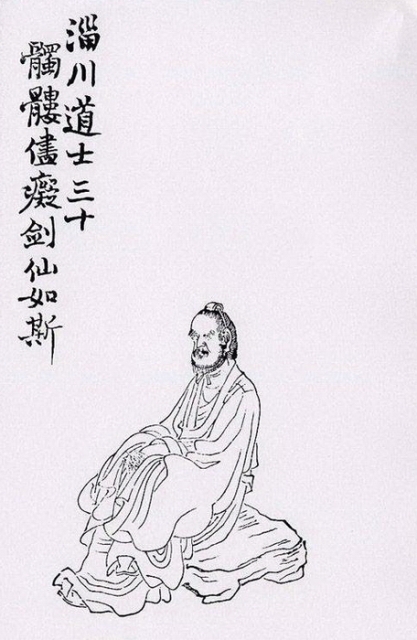 淄川道士三十
髑髏儘癡劍仙如斯